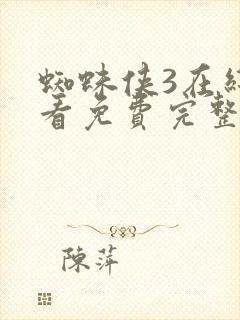 蜘蛛侠3在
看免費完整
陳萍